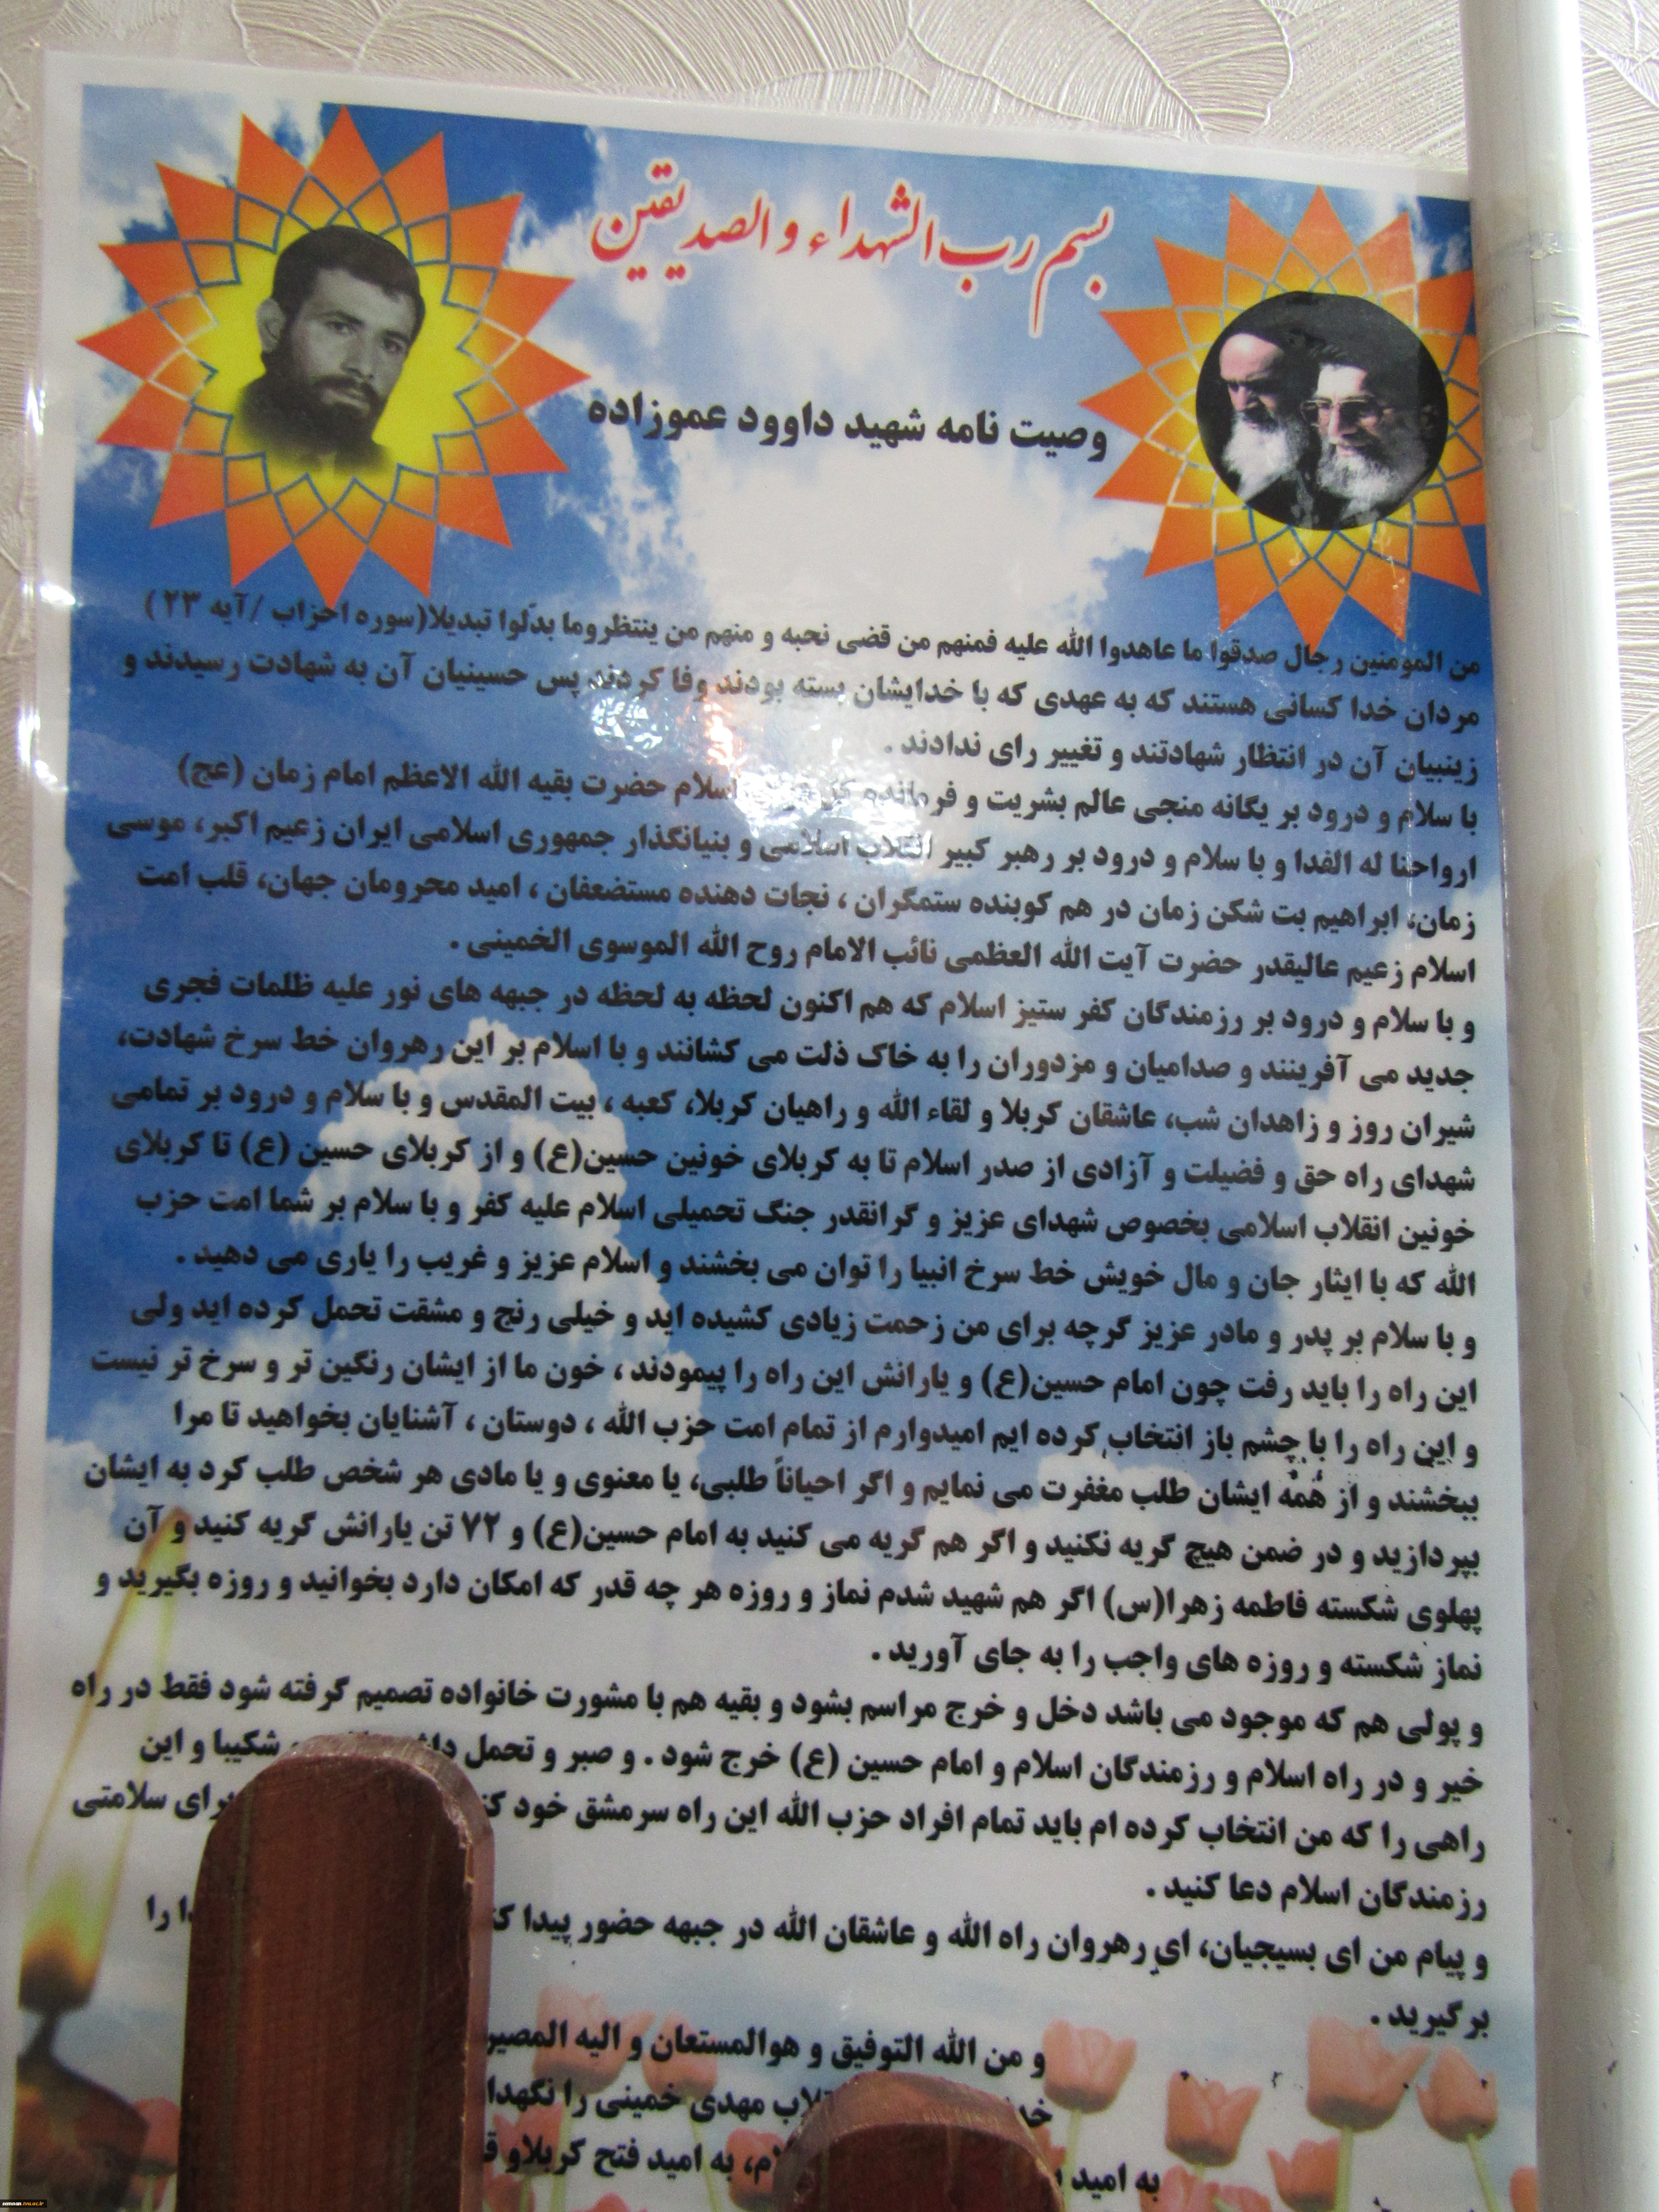 بسم رب الشهداء و الصدیقین
وصیت نامه شهید داوود عموزاده
من المومنین رجال صدقوا ما عاهدوا الله علیه فمنهم من قضی نحبه و منهم من ینتظروما بدّلوا تبدیلا(سوره احزاب /آیه ۲۳ )
مردان خدا کسانی هستند که به عهدی که با خدایشان بسته بودند وفا کردند پس حسینیان آن به شهادت رسیدند و
زینبیان آن در انتظار شهادتند و تغییر رای ندادند .
با سلام و درود بر یگانه منجی عالم بشریت و فرمانده اسلام حضرت بقیه الله الاعظم امام زمان (عج)
ارواحنا له الفدا و با سلام و درود بر رهبر کبیر انقلاب اسلامی و بنیانگذار جمهوری اسلامی ایران زعیم اکبر، موسی
زمان، ابراهیم بت شکن زمان در هم کوبنده ستمگران ، نجات دهنده مستضعفان ، امید محرومان جهان، قلب امت
اسلام زعیم عالیقدر حضرت آیت الله العظمی نائب الامام روح الله الموسوی الخمینی .
و با سلام و درود بر رزمندگان کفر ستیز اسلام که هم اکنون لحظه به لحظه در جبهه های نور علیه ظلمات فجری
جدید می آفرینند و صدامیان و مزدوران را به خاک ذلت می کشانند و با اسلام بر این رهروان خط سرخ شهادت،
شیران روز و زاهدان شب، عاشقان کربلا و لقاء الله و راهیان کربلا، کعبه ، بیت المقدس و با سلام و درود بر تمامی
شهدای راه حق و فضیلت و آزادی از صدر اسلام تا به کربلای خونین حسین(ع) و از کربلای حسین (ع) تا کربلای
خونین انقلاب اسلامی بخصوص شهدای عزیز و گرانقدر جنگ تحمیلی اسلام علیه کفر و با سلام بر شما امت حزب
الله که با ایثار جان و مال خویش خط سرخ انبیا را توان می بخشند و اسلام عزیز و غریب را یاری می دهید .
و با سلام بر پدر و مادر عزیز گرچه برای من زحمت زیادی کشیده اید و خیلی رنج و مشقت تحمل کرده اید ولی
این راه را باید رفت چون امام حسین(ع) و یارانش این راه را پیمودند ، خون ما از ایشان رنگین تر و سرخ تر نیست
و این راه را با چشم باز انتخاب کرده ایم امیدوارم از تمام امت حزب الله ، دوستان ، آشنایان بخواهید تا مرا
ببخشند و از همه ایشان طلب مغفرت می نمایم و اگر احیاناً طلبی، یا معنوی و یا مادی هر شخص طلب کرد به ایشان
بپردازید و در ضمن هیچ گریه نکنید و اگر هم گریه می کنید به امام حسین(ع) و ۷۲ تن یارانش گریه کنید و آن
پهلوی شکسته فاطمه زهرا(س) اگر هم شهید شدم نماز و روزه هر چه قدر که امکان دارد بخوانید و روزه بگیرید و
نماز شکسته و روزه های واجب را به جای آورید .
و پولی هم که موجود می باشد دخل و خرج مراسم بشود و بقیه هم با مشورت خانواده تصمیم گرفته شود فقط در راه
خیر و در راه اسلام و رزمندگان اسلام و امام حسین (ع) خرج شود . و صبر و تحمل شکیبا و این
راهی را که من انتخاب کرده ام باید تمام افراد حزب الله این راه سرمشق خود برای سلامتی
رزمندگان اسلام دعا کنید .
و پیام من ای بسیجیان، ای رهروان راه الله و عاشقان الله در جبهه حضور پیدا را
برگیرید .
و من الله التوفیق و هوالمستعان و الیه المصیر
مهدی خمینی را
به امید به امید فتح کربلاو